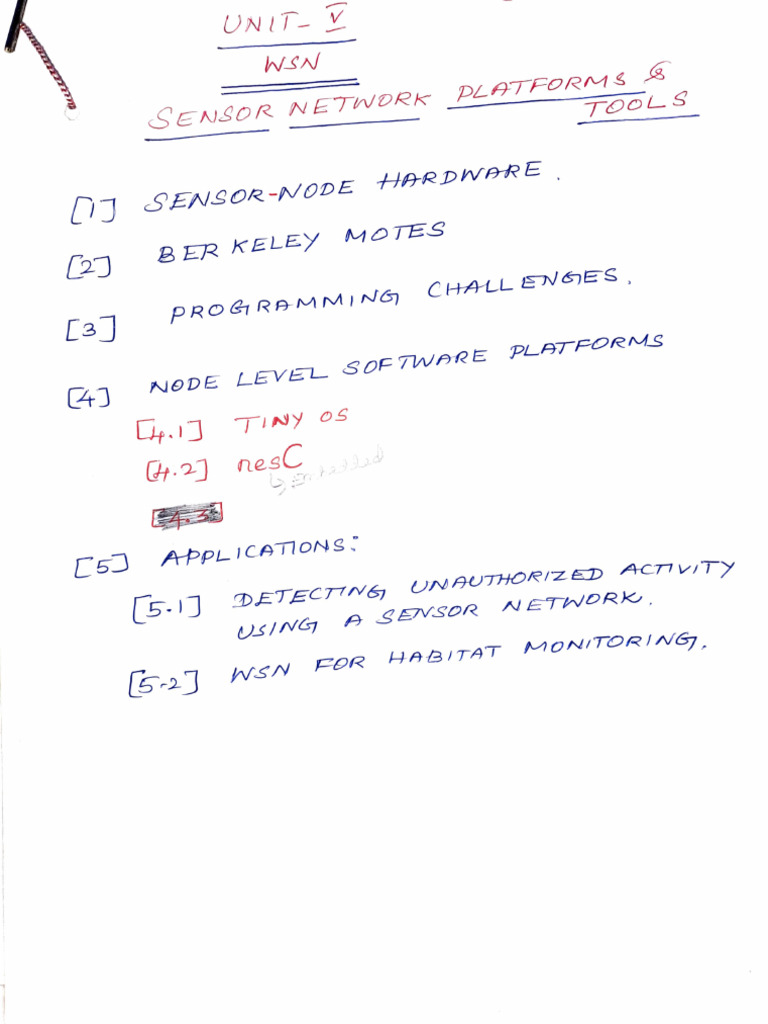 UNIT- V
WSN
SENSOR NETWORK PLATFORMS &
TOOLS
[1] SENSOR-NODE HARDWARE.
[2] BERKELEY MOTES
[3] PROGRAMMING CHALLENGES.
[4] NODE LEVEL SOFTWARE PLATFORMS
[4.1] TINY OS
[4.2] nesC
[4.3]
[5] APPLICATIONS:
[5.1] DETECTING UNAUTHORIZED ACTIVITY
USING A SENSOR NETWORK.
[5-2] WSN FOR HABITAT MONITORING.